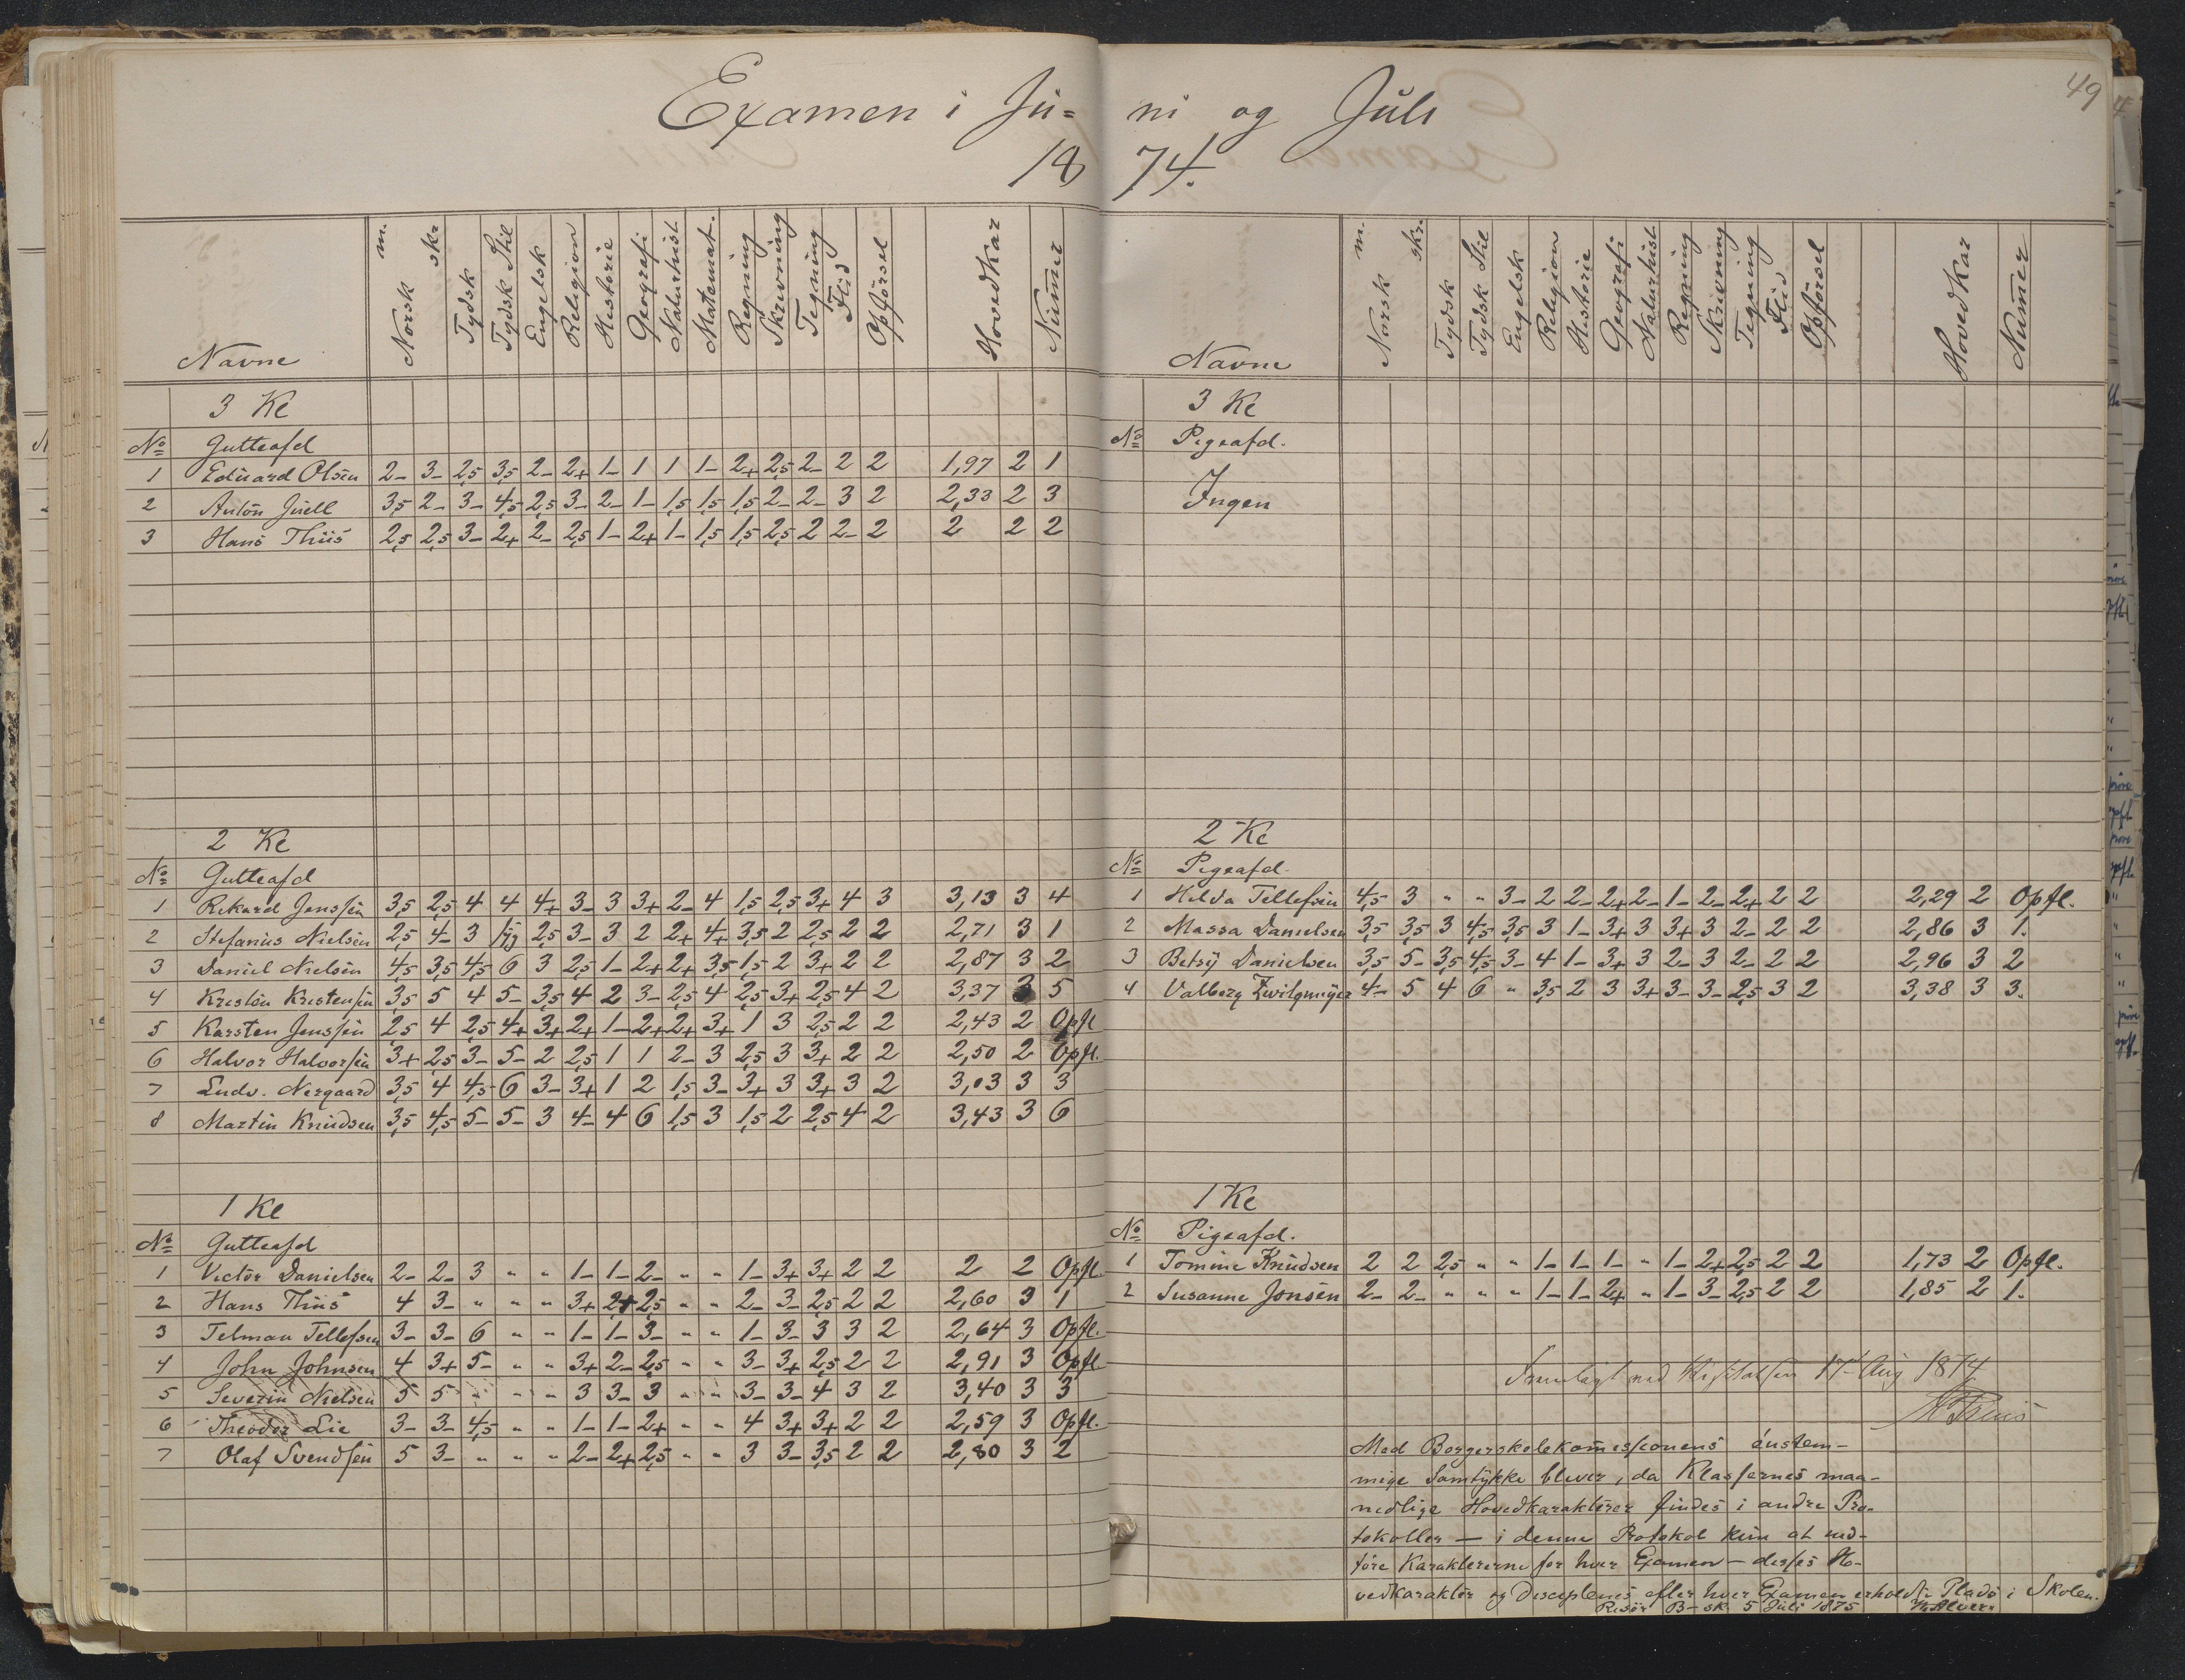 Examen i Ju=
18
Navne Norsk m. skr. Tydsk Tydsk Stil Engelsk Religion Historie Geografi Naturhist Matemat. Regning Skrivning Tegning Flid Opförsel Hovedkar Numer
3 Kl
No Gutteafd
1 Eduard Olsen 2- 3- 2,5 3,5 2- 2+ 1- 1 1 1- 2+ 2,5 2- 2 2 1,97 2 1
2 Anton Juell 3,5 2- 3- 4,5 2,5 3- 2- 1- 1,5 1,5 1,5 2- 2- 3 2 2,33 2 3
3 Hans Thiis 2,5 2,5 3- 2+ 2- 2,5 1- 2+ 1- 1,5 1,5 2,5 2 2- 2 2 2 2
2 Kl
No Gutteafd
1 Rikard Jenssen 3,5 2,5 4 4 4+ 3- 3 3+ 2- 4 1,5 2,5 3+ 4 3 3,13 3 4
2 Stefanius Nielsen 2,5 4- 3 2,5 3- 3 2 2+ 4+ 3,5 2 2,5 2 2 2,71 3 1
3 Daniel Nielsen 4,5 3,5 4,5 6 3 2,5 1- 2+ 2+ 3,5 1,5 2 3+ 2 2 2,87 3 2
4 Kristen Kristensen 3,5 5 4 5- 3,5 4 2 3- 2,5 4 2,5 3+ 2,5 4 2 3,37 3 5
5 Karsten Jenssen 2,5 4 2,5 4+ 3+ 2+ 1- 2+ 2+ 3+ 1 3 2,5 2 2 2,43 2 Opfl
6 Halvor Halvorsen 3+ 2,5 3- 5- 2 2,5 1 1 2- 3 2,5 3 3+ 2 2 2,50 2 Opfl.
7 Ludv. Nergaard 3,5 4 4,5 6 3- 3+ 1 2 1,5 3- 3+ 3 3+ 3 2 3,03 3 3
8 Martin Knudsen 3,5 4,5 5- 5- 3 4- 4 6 1,5 3 1,5 2 2,5 4 2 3,43 3 6
1 Kl
No Gutteafd
1 Victor Danielsen 2- 2- 3 " " 1- 1- 2- " " 1- 3+ 3+ 2 2 2 2 Opfl.
2 Hans Thiis 4 3- " " " 3+ 2+ 2,5 " " 2- 3- 2,5 2 2 2,60 3 1
3 Telman Tellefsen 3- 3- 6 " " 1- 1- 3- " " 1- 3- 3 3 2 2,64 3 Opfl.
4 John Johnsen 4 3+ 5- " " 3+ 2- 2,5 " " 3- 3+ 2,5 2 2 2,91 3 Opfl
5 Severin Nielsen 5 5 " " " 3 3- 3 " " 3- 3- 4 3 2 3,40 3 3
6 Theodor Lie 3- 3- 4,5 " " 1- 1- 2+ " " 4 3+ 3+ 2 2 2,59 3 Opfl.
7 Olaf Svendsen 5 3- " " " 2- 2+ 2,5 " " 3 3- 3,5 2 2 2,80 3 2
49
ni og Juli
74.
Navne Norsk m. skr. Tydsk Tydsk Stil Engelsk Religion Historie Geografi Naturhist Regning Skrivning Tegning Flid Opförsel Hovedkar Numer
3 Kl
No Pigeafd.
Ingen
2 Kl
No Pigeafd.
1 Helda Tellefsen 4,5 3 " " 3- 2 2- 2+ 2- 1- 2- 2+ 2 2 2,29 2 Opfl.
2 Massa Danielsen 3,5 3,5 3 4,5 3,5 3 1- 3+ 3 3+ 3 2- 2 2 2,86 3 1.
3 Betsy Danielsen 3,5 5- 3,5 4,5 3- 4 1- 3+ 3 2- 3 2- 2 2 2,96 3 2
4 Valborg Zwilgmeyer 4- 5 4 6 " 3,5 2 3 3+ 3- 3- 2,5 3 2 3,38 3 3.
1 Kl
No Pigeafd.
1 Tomine Knudsen 2 2 2,5 " " 1- 1- 1- " 1- 2+ 2,5 2 2 1,73 2 Opfl.
2 Susanne Jonsen 2- 2- " " " 1- 1- 2+ " 1- 3- 2,5 2 2 1,85 2 1.
Fremlagt ved Visitatsen 17de Aug 1874
Med Borgerskolekomissionens enstem-
mige Samtykke bliver, da Klassernes maa-
nedlige Hovedkarakterer findes i andre Pro-
tokoller — i denne Protokol kun at ind-
føre Karaktererne for hver Examen — disses Ho-
vedkarakter og Disciplenes efter hver Examen erholdte Plads i Skolen.
Risör B-sk. 5 Juli 1875